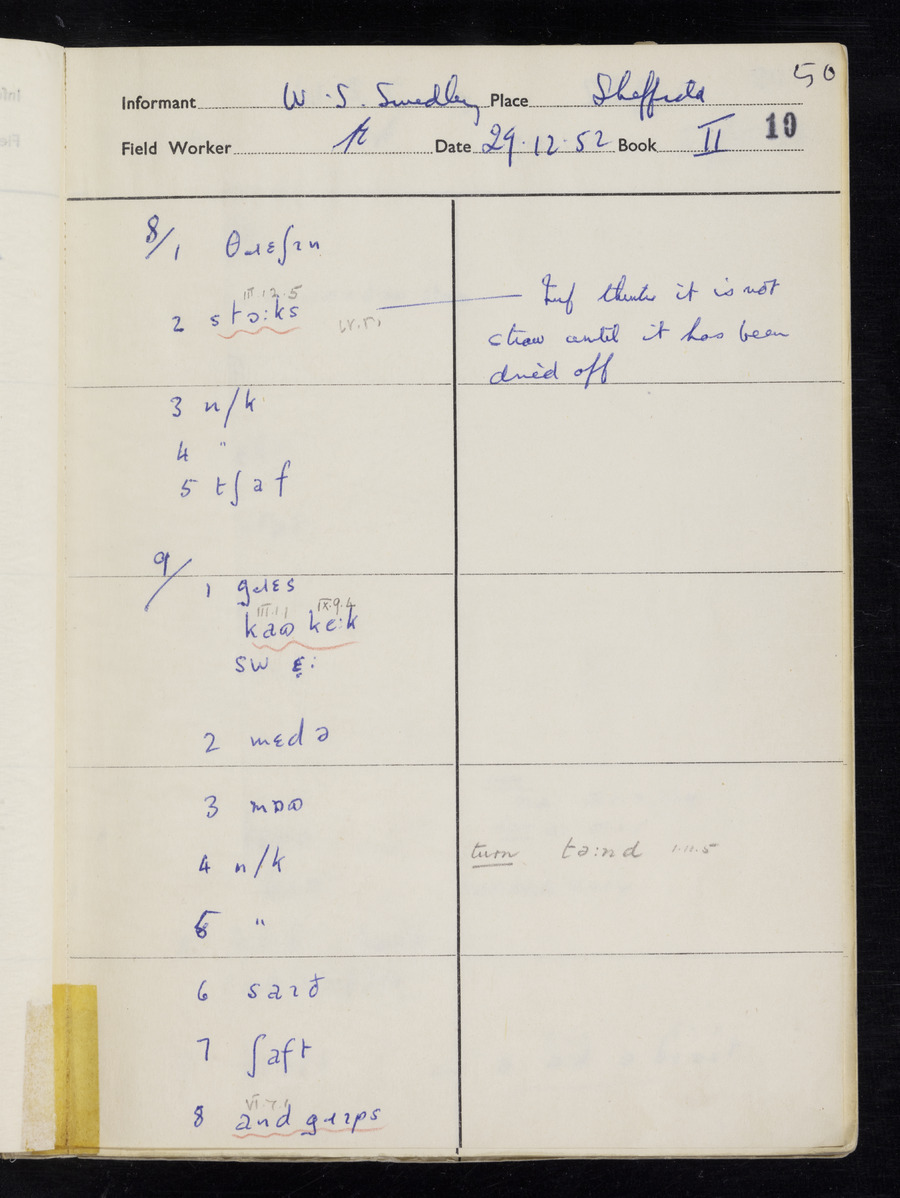 50
Informant W. S. Smedley Place Sheffield
Field Worker Date 29.12.52 Book II 10
8/1 θɹɛʃɪn
III.12.5
2 stɔ:ks
it is not
straw until it has been
dried off
3 n/k
4 "
5 tʃaf
9/
1 gɹɛs
III.1.1 IX.9.4
kaω ke:k
SW ɛ:
2 mɛdə
3 mɒω
4 n/k
turn tə:nd 1.11.5
5 "
6 saɪð
7 ʃaft
VI.7.1
8 and gɹɪps